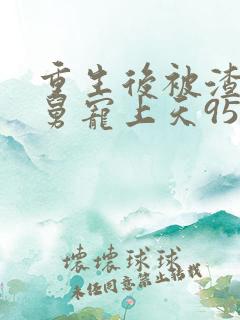 重生後被渣
舅寵上天95
壞壞球球
未任同意禁止转载